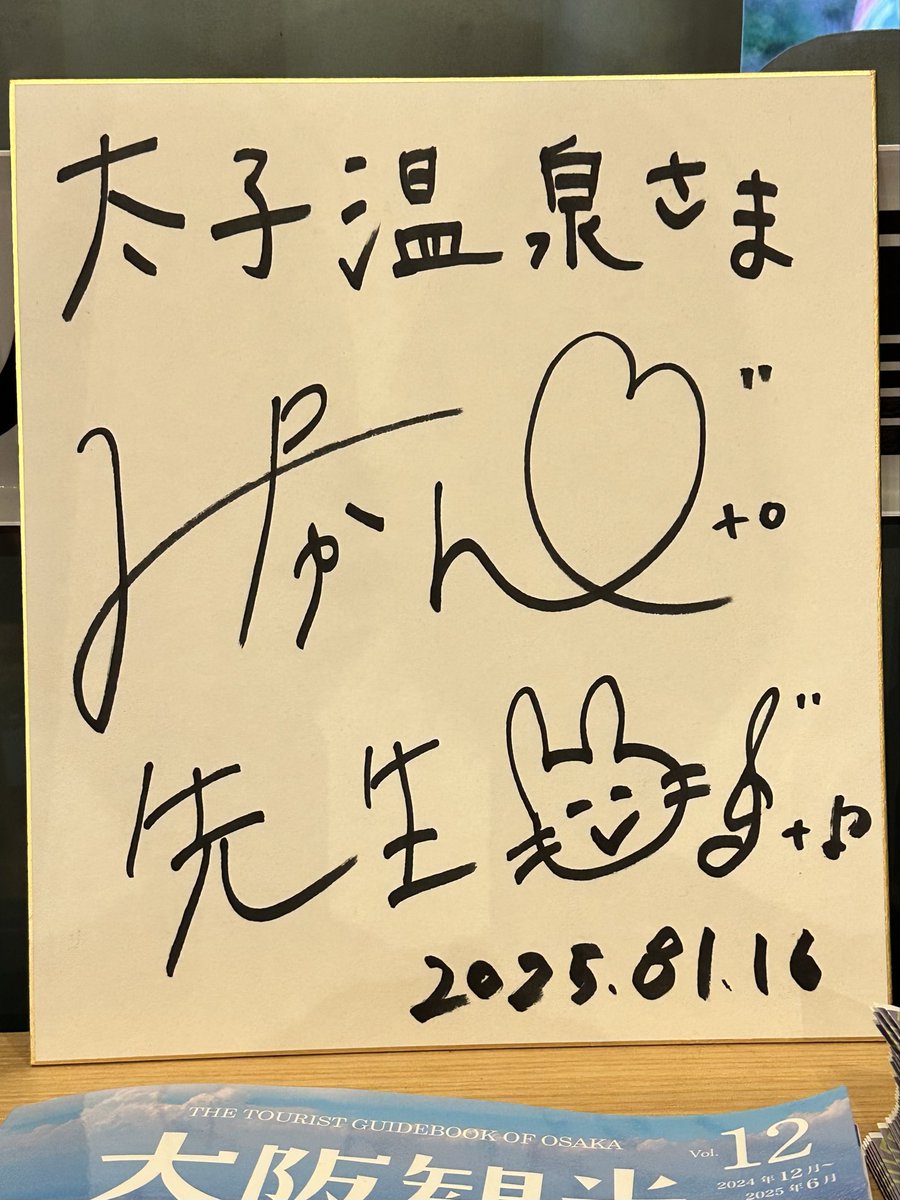 太子温泉さま
みかん
先生
2025.81.16
THE TOURIST GUIDEBOOK OF OSAKA
大阪観光
Vol. 12
2024年12月〜
2025年6月